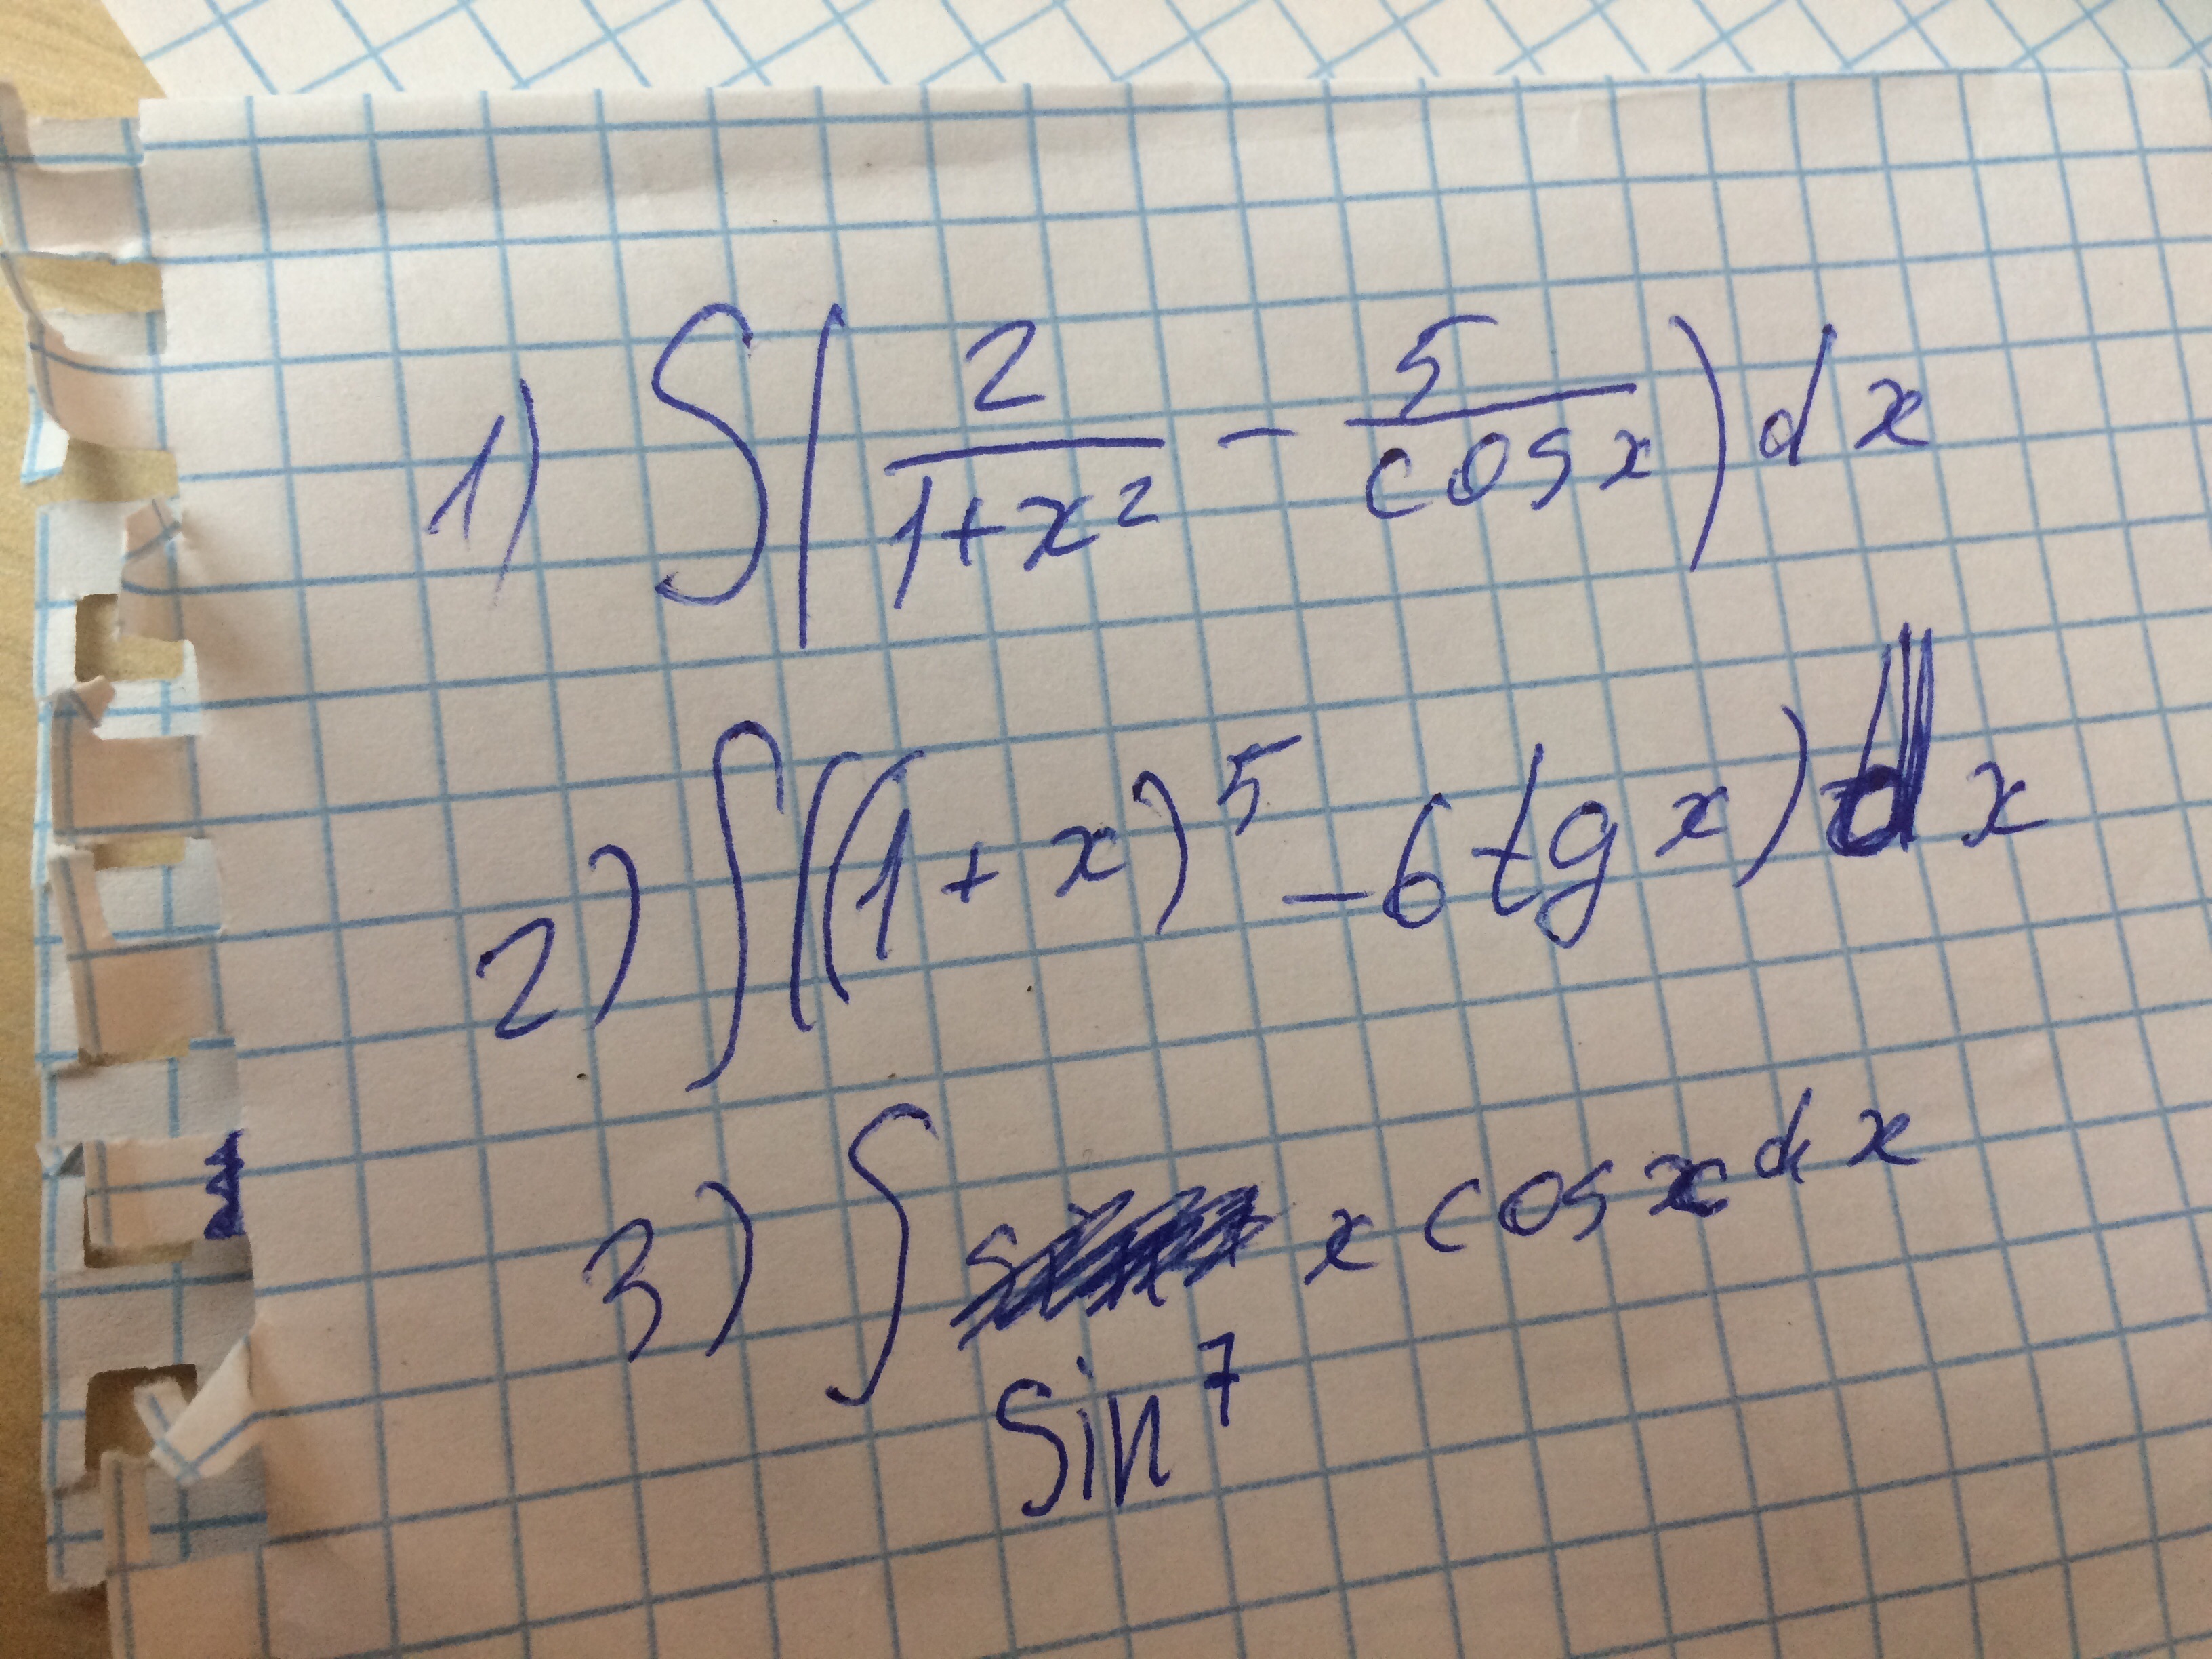 1) ∫(2/(1+x²) - 5/cosx)dx
2) ∫((1+x)⁵ - 6tgx)dx
3) ∫ x cosx dx
sin⁷